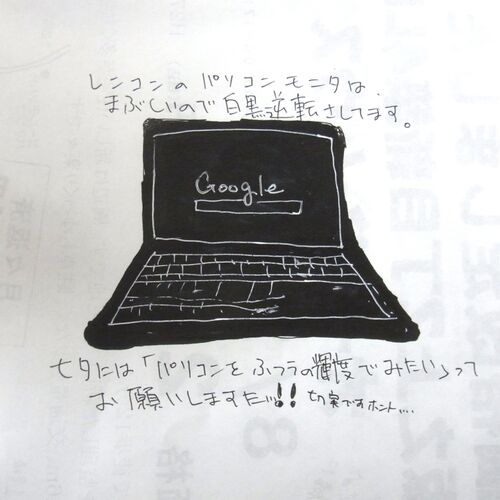 レンコンのパソコンモニタは、
まぶしいので白黒逆転さしてます。
Google
七夕には「パソコンをふつうの輝度でみたい」って
お願いしますたッ!! 切実ですホント....